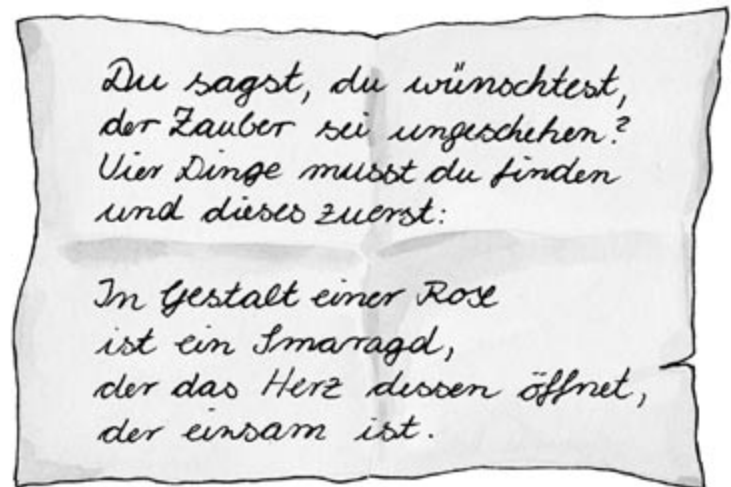 Du sagst, du wünschtest,
der Zauber sei ungeschehen?
Vier Dinge musst du finden
und dieses zuerst:
In Gestalt einer Rose
ist ein Smaragd,
der das Herz dessen öffnet,
der einsam ist.